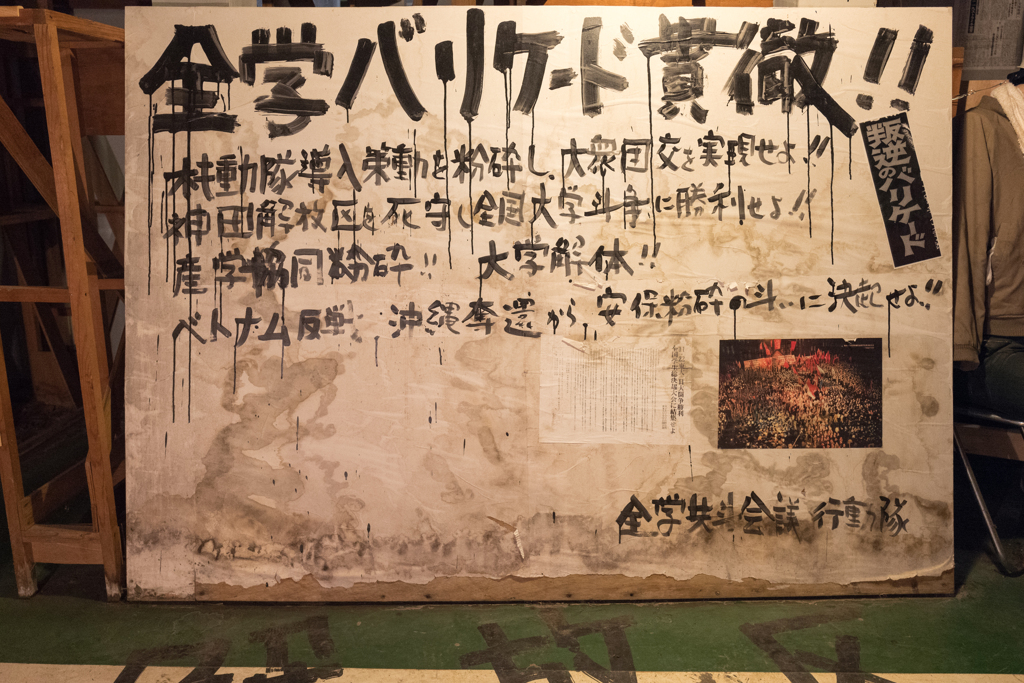 全学バリケード貫徹!!
機動隊導入策動を粉砕し、大衆団交を実現せよ!!
神田解放区を死守し全国大学斗争に勝利せよ!!
産学協同粉砕!! 大学解体!!
ベトナム反戦 沖縄奪還から、安保粉砕の斗いに決起せよ!!
叛逆のバリケード
全学共斗会議 行動隊